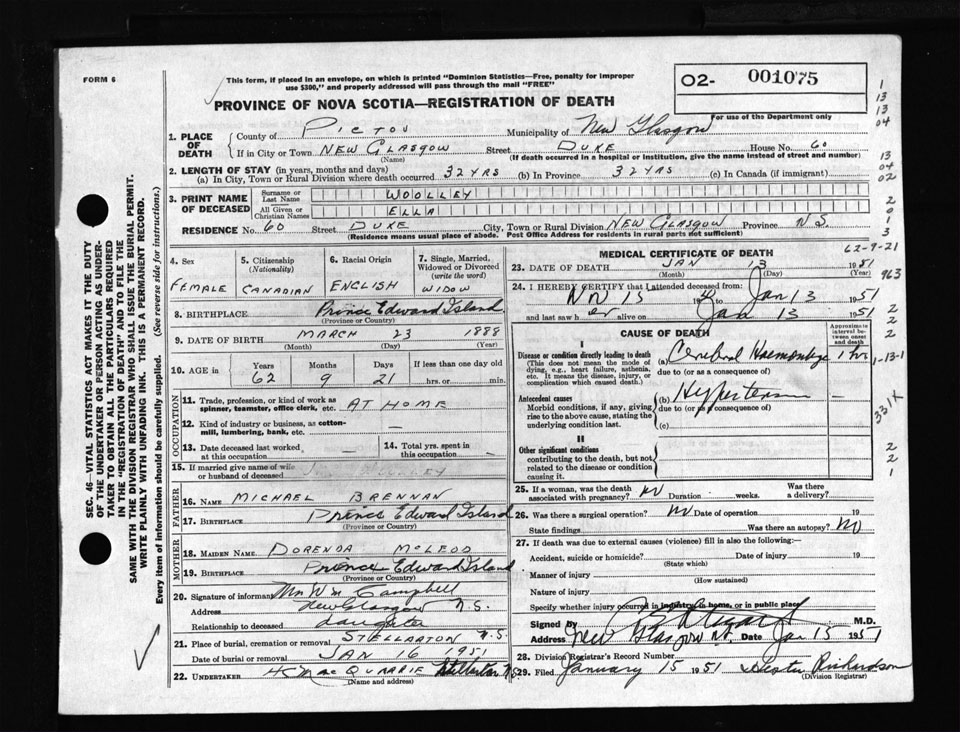 FORM 6
This form, if placed in an envelope, on which is printed "Dominion Statistics—Free, penalty for improper
use $300," and properly addressed will pass through the mail "FREE"
PROVINCE OF NOVA SCOTIA—REGISTRATION OF DEATH
02- 001075
For use of the Department only
1. PLACE OF DEATH
County of PICTOU Municipality of New Glasgow
If in City or Town NEW GLASGOW Street DUKE House No. 60
(Name) (If death occurred in a hospital or institution, give the name instead of street and number)
2. LENGTH OF STAY (in years, months and days)
(a) In City, Town or Rural Division where death occurred 32 YRS (b) In Province 32 YRS (c) In Canada (if immigrant)
3. PRINT NAME OF DECEASED
Surname or Last Name WOOLLEY
All Given or Christian Names ELLA
RESIDENCE No. 60 Street DUKE City, Town or Rural Division NEW GLASGOW Province N.S.
(Residence means usual place of abode. Post Office Address for residents in rural parts not sufficient)
4. Sex
FEMALE
5. Citizenship
(Nationality)
CANADIAN
6. Racial Origin
ENGLISH
7. Single, Married,
Widowed or Divorced
(write the word)
WIDOW
8. BIRTHPLACE Prince Edward Island
(Province or Country)
9. DATE OF BIRTH MARCH 23 1888
(Month) (Day) (Year)
10. AGE in
Years Months Days If less than one day old
62 9 21 hrs. or min.
OCCUPATION
11. Trade, profession, or kind of work as
spinner, teamster, office clerk, etc. AT HOME
12. Kind of industry or business, as cotton-
mill, lumbering, bank, etc. —
13. Date deceased last worked
at this occupation —
14. Total yrs. spent in
this occupation —
15. If married give name of wife
or husband of deceased
FATHER
16. NAME MICHAEL BRENNAN
17. BIRTHPLACE Prince Edward Island
(Province or Country)
MOTHER
18. MAIDEN NAME DORENDA McLEOD
19. BIRTHPLACE Prince Edward Island
(Province or Country)
20. Signature of informant Mrs Wm Campbell
Address New Glasgow N.S.
Relationship to deceased daughter
21. Place of burial, cremation or removal STELLARTON N.S.
Date of burial or removal JAN 16 1951
22. UNDERTAKER MacQUARRIE Stellarton N.S.
(Name and address)
MEDICAL CERTIFICATE OF DEATH
62-9-21
23. DATE OF DEATH JAN 13 1951
(Month) (Day) (Year)
24. I HEREBY CERTIFY that I attended deceased from:
Nov 15 to Jan 13 1951
and last saw her alive on Jan 13 1951
CAUSE OF DEATH
Approximate
interval be-
tween onset
and death
I
Disease or condition directly leading to death
(This does not mean the mode of
dying, e.g., heart failure, asthenia,
etc. It means the disease, injury, or
complication which caused death.)
(a) Cerebral Haemorrhage 1 hr
due to (or as a consequence of)
Antecedent causes
Morbid conditions, if any, giving
rise to the above cause, stating the
underlying condition last.
(b) Hypertension —
due to (or as a consequence of)
(c)
II
Other significant conditions
contributing to the death, but not
related to the disease or condition
causing it.
25. If a woman, was the death
associated with pregnancy? No Duration weeks. Was there
a delivery?
26. Was there a surgical operation? No Date of operation 19
State findings Was there an autopsy? No
27. If death was due to external causes (violence) fill in also the following:—
Accident, suicide or homicide? Date of injury 19
(State which)
Manner of injury
(How sustained)
Nature of injury
Specify whether injury occurred in industry, in home, or in public place
Signed by M.D.
Address New Glasgow NS. Date Jan 15 1951
28. Division Registrar's Record Number
29. Filed January 15 1951 Hester Richardson
(Division Registrar)
SEC. 46—VITAL STATISTICS ACT MAKES IT THE DUTY
OF THE UNDERTAKER OR PERSON ACTING AS UNDER-
TAKER TO OBTAIN ALL THE PARTICULARS REQUIRED
IN THE "REGISTRATION OF DEATH" AND TO FILE THE
SAME WITH THE DIVISION REGISTRAR WHO SHALL ISSUE THE BURIAL PERMIT.
WRITE PLAINLY WITH UNFADING INK. THIS IS A PERMANENT RECORD.
Every item of information should be carefully supplied. (See reverse side for instructions.)
1
13
13
04
13
04
02
2
0
1
3
963
2
2
2
1-13-1
331X
2
2
1